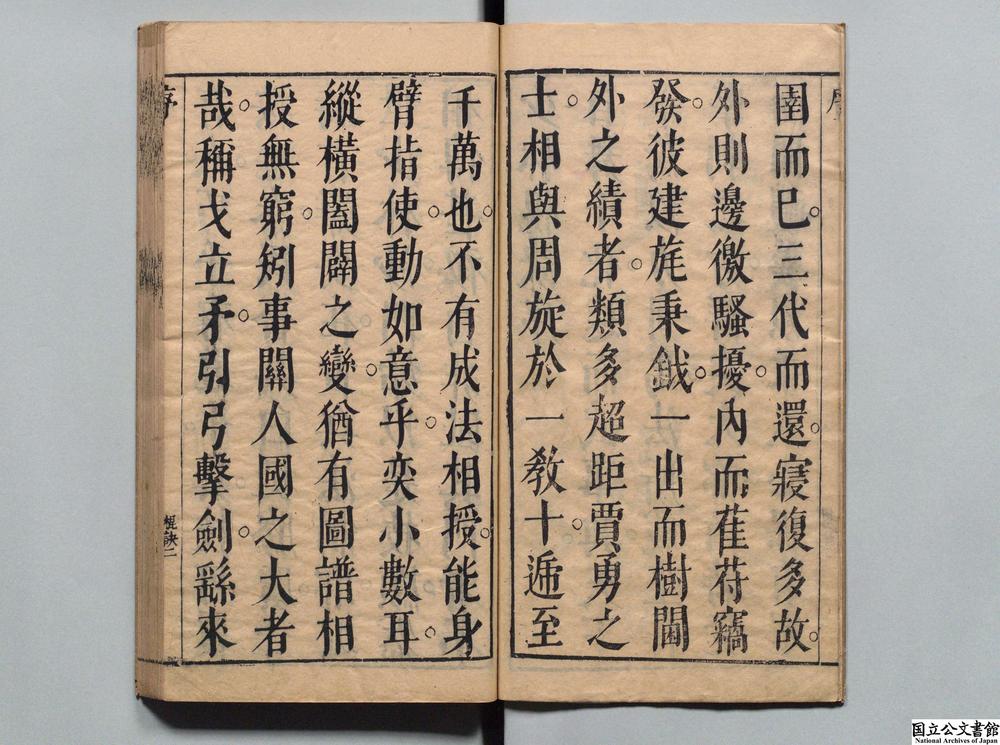 圉而已。三代而還。寖復多故。
外則邊徼騷擾。內而萑苻竊
發。彼建旄秉鉞。一出而樹閫
外之績者。類多超距賈勇之
士。相與周旋於一教十。遞至
千萬也。不有成法相授。能身
臂指使。動如意乎。奕小數耳。
縱橫闔闢之變。猶有圖譜相
授無窮。矧事關人國之大者
哉。稱戈立矛。引弓擊劍。繇來
序
棍訣二
国立公文書館
National Archives of Japan